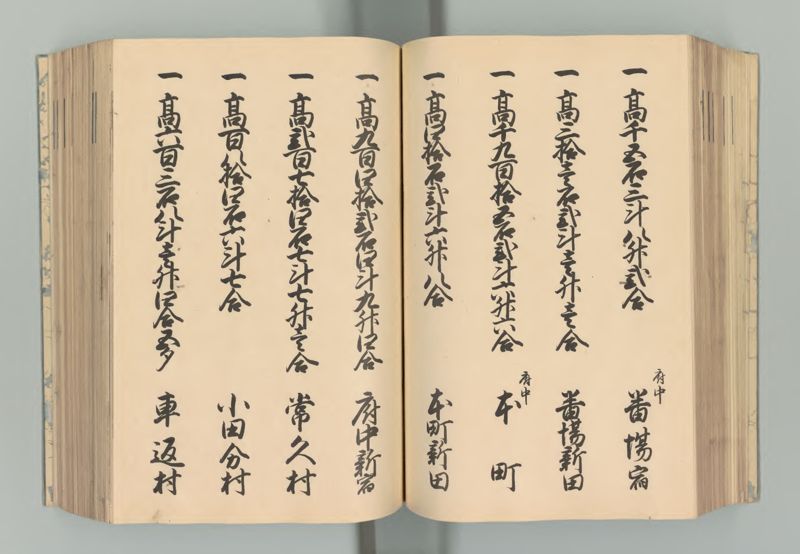 一 高千五石三斗八升弐合 府中 番場宿
一 高三拾壱石弐斗壱升壱合 番場新田
一 高千九百拾五石弐斗六升六合 府中 本町
一 高四拾石弐斗六升八合 本町新田
一 高九百四拾弐石四斗九升四合 府中新宿
一 高弐百七拾四石七斗七升壱合 常久村
一 高百八拾四石六斗七合 小田分村
一 高六百三石八斗壱升四合五夕 車返村